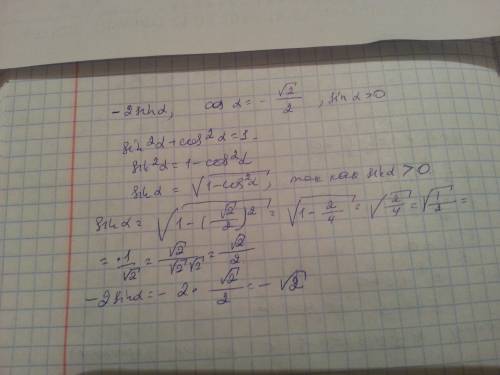 -2sinα, cos α = - √2/2, sin α>0
sin²α+cos²α=1.
sin²α = 1-cos²α
sin α = √(1-cos²α), так как sinα > 0
sin α = √(1-(√2/2)²) = √(1-2/4) = √(2/4) = √(1/2) =
= 1/√2 = √2/(√2 √2) = √2/2
-2sinα = - 2 · √2/2 = - √2